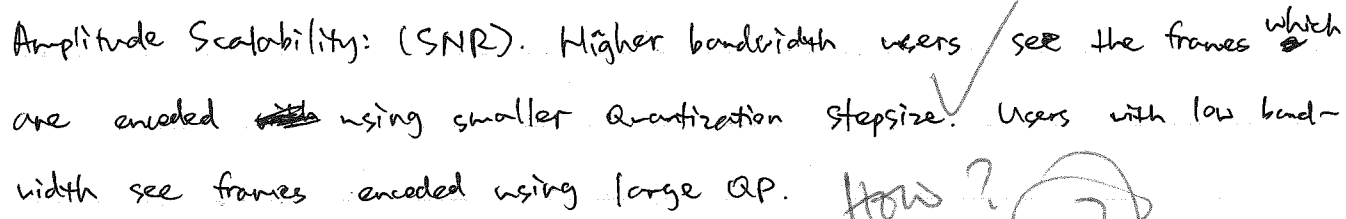 Amplitude Scalability: (SNR). Higher bandwidth users see the frames which
are encoded using smaller Quantization stepsize. Users with low band-
width see frames encoded using large QP. How?